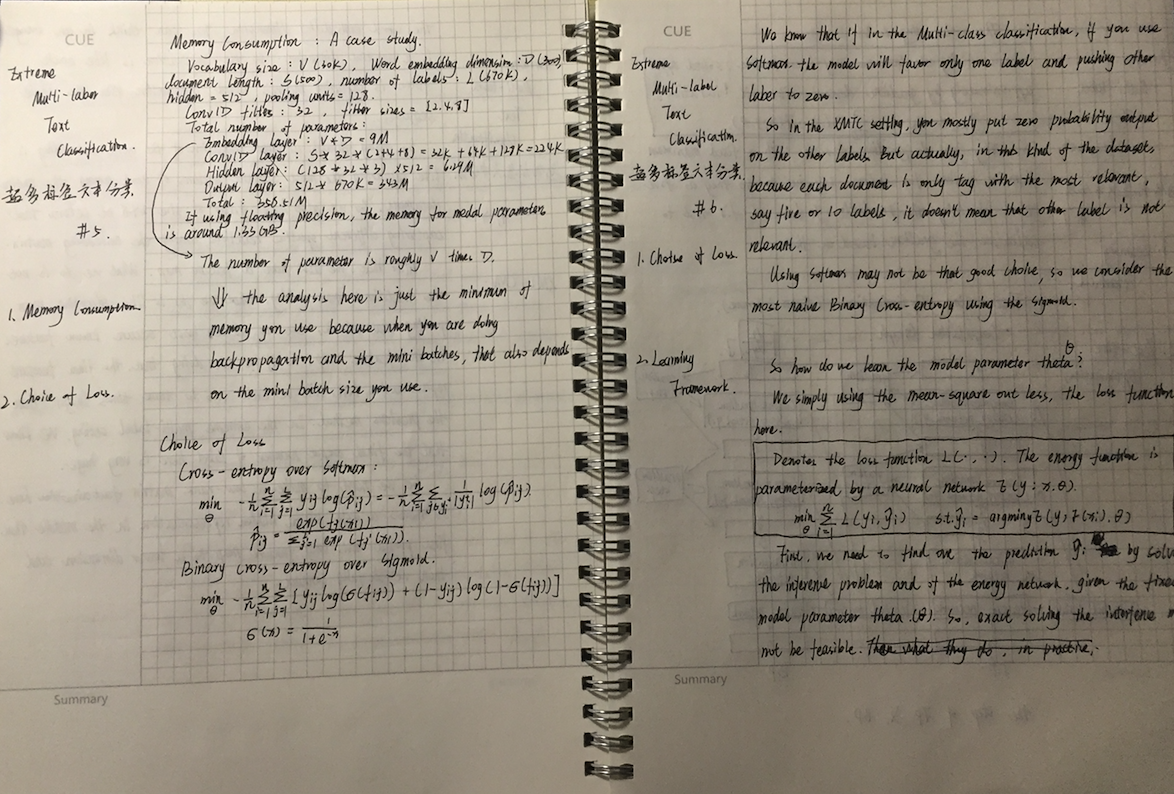 CUE
Extreme
Multi-label
Text
Classification.
超多标签文本分类
#5.
1. Memory Consumption.
2. Choice of Loss.
Memory Consumption : A case study.
Vocabulary size : V (30K), Word embedding dimension : D (300),
document length : S(500), number of labels : L (670K),
hidden = 512, pooling units = 128.
Conv1D filters : 32, filter sizes = [2.4.8]
Total number of parameters :
Embedding layer : V * D = 9M
Conv1D layer : S * 32 * (2+4+8) = 32K + 64K + 128K = 224K
Hidden layer : (128 * 32 * 3) * 512 = 6.29M
Output layer : 512 * 670K = 343M
Total : 358.51M
If using floating precision, the memory for model parameters
is around 1.33GB.
The number of parameter is roughly V times D.
⇓ the analysis here is just the minimum of
memory you use because when you are doing
backpropagation and the mini batches, that also depends
on the mini batch size you use.
Choice of Loss
Cross-entropy over Softmax :
min θ -1/n Σ i=1 n Σ j=1 L yij log(p̂ij) = -1/n Σ i=1 n Σ j∈yi 1/|yi| log(p̂ij).
p̂ij = exp(fj(xi)) / Σ j'=1 L exp(fj'(xi)).
Binary cross-entropy over Sigmoid.
min θ -1/n Σ i=1 n Σ j=1 L [yij log(σ(fij)) + (1-yij) log(1-σ(fij))]
σ(x) = 1 / 1+e^-x
Summary
CUE
Extreme
Multi-label
Text
Classification.
超多标签文本分类.
#6.
1. Choise of Loss.
2. Learning
Framework.
We know that if in the Multi-class classification, if you use
softmax the model will favor only one label and pushing other
label to zero.
So in the XMTC setting, you mostly put zero probability output
on the other labels. But actually, in this kind of the dataset,
because each document is only tag with the most relevant,
say five or 10 labels, it doesn't mean that other label is not
relevant.
Using softmax may not be that good choice, so we consider the
most naive Binary Cross-entropy using the sigmoid.
θ
So how do we lean the model parameter theta?
We simply using the mean-square out less, the loss function
here.
Denotes the loss function L(·,·). The energy function is
parameterized by a neural network E(y; x, θ).
min θ Σ i=1 n L(yi, ŷi) s.t. ŷi = argminy E(y, F(xi), θ)
First, we need to find ove the prediction ŷi by solv
the inference problem and of the energy network, given the fixed
model parameter theta.(θ). So, exact solving the interfense m
not be feasible. Then what they do, in practice,
Summary